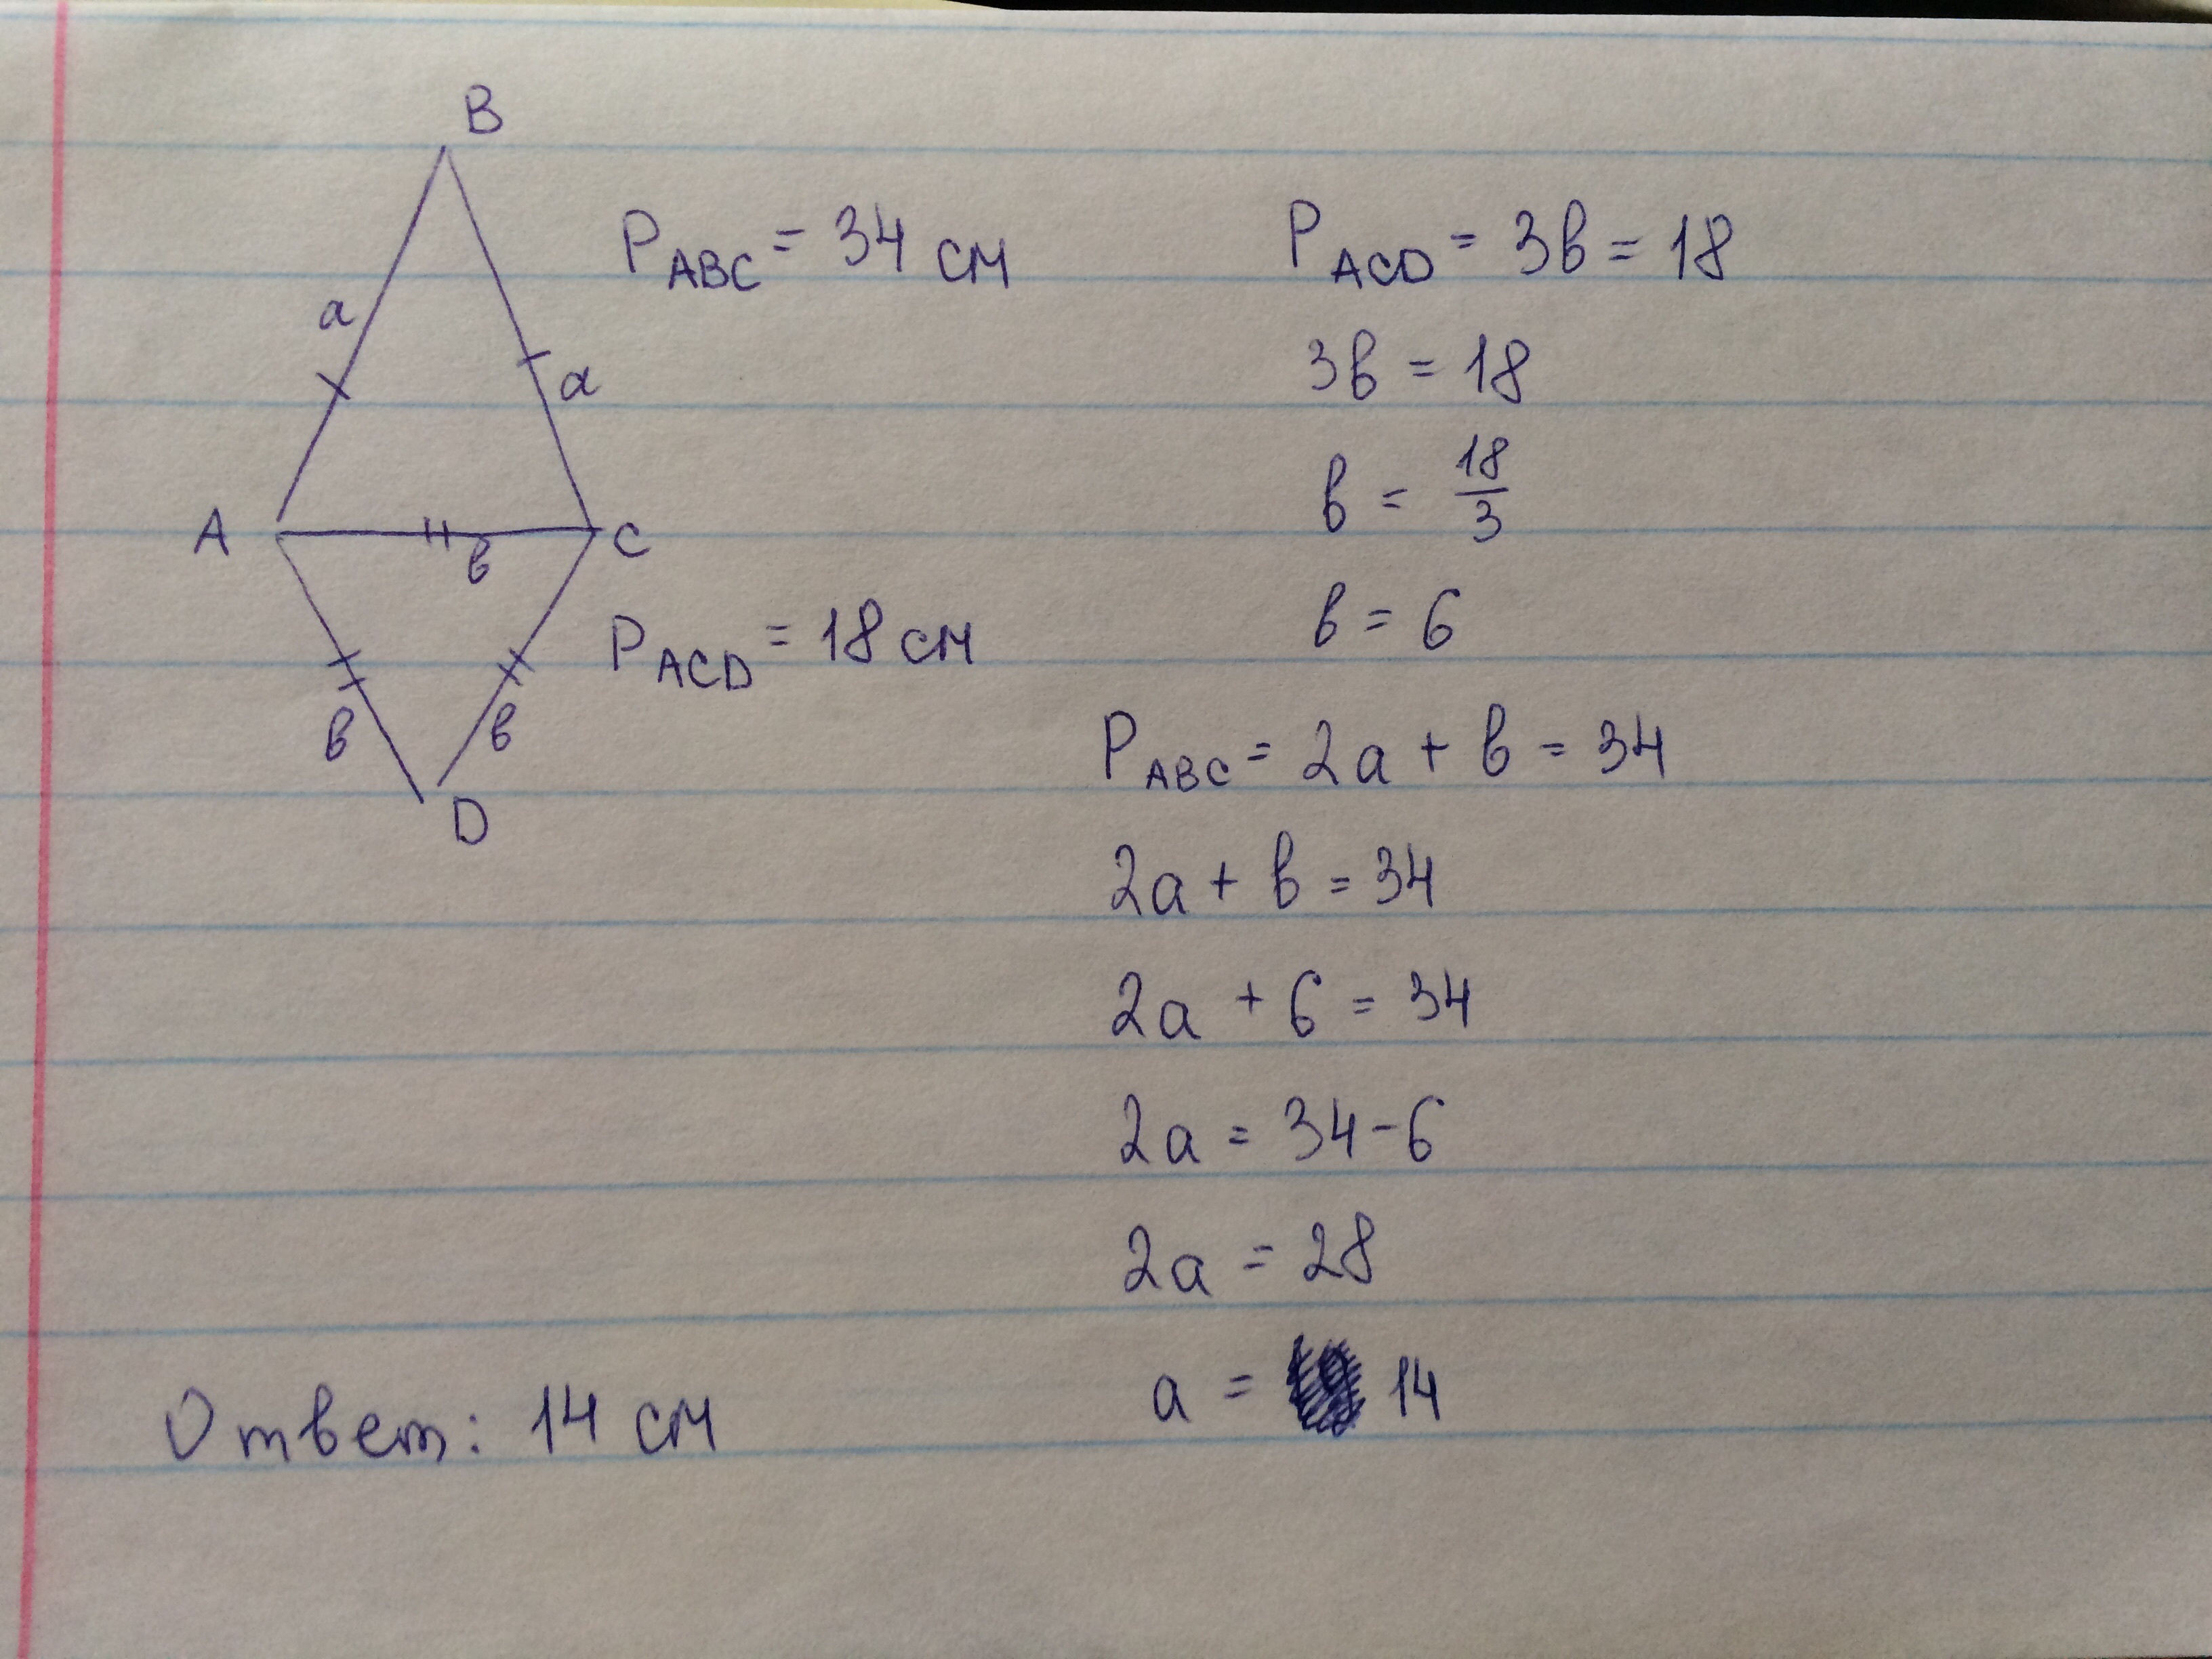 B
a
a
A
в
C
в
в
D
P_ABC = 34 см
P_ACD = 18 см
P_ACD = 3в = 18
3в = 18
в = 18/3
в = 6
P_ABC = 2a + в = 34
2a + в = 34
2a + 6 = 34
2a = 34 - 6
2a = 28
a = 14
Ответ: 14 см